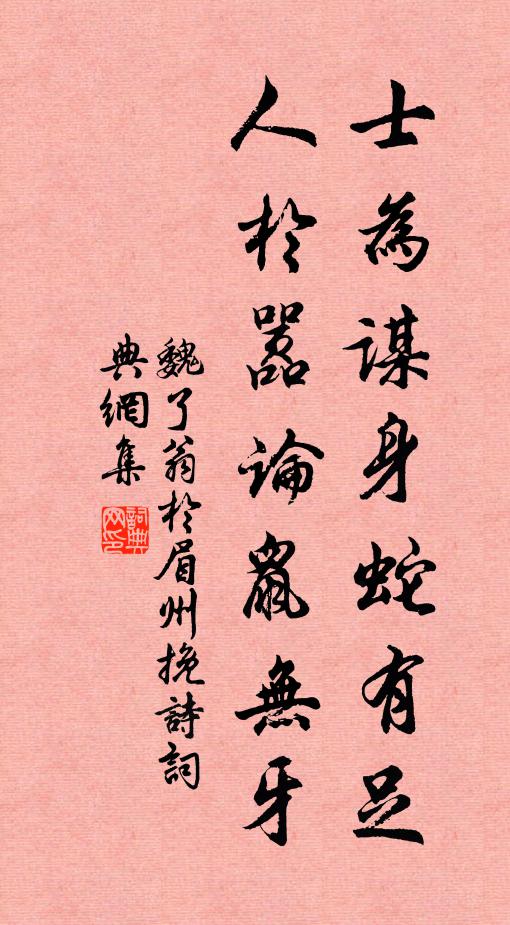 士為謀身蛇有足
人於囂論鼠無牙
魏了翁於眉州挽詩詞
典網集
詞典网印